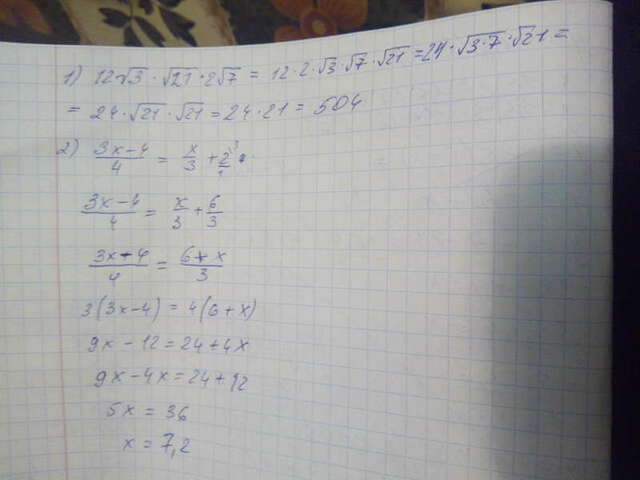 1) 12√3 · √21 · 2√7 = 12 · 2 · √3 · √7 · √21 = 24 · √3·7 · √21 =
= 24 · √21 · √21 = 24 · 21 = 504
2) (3x-4)/4 = x/3 + 2/1 ³
(3x-4)/4 = x/3 + 6/3
(3x-4)/4 = (6+x)/3
3(3x-4) = 4(6+x)
9x - 12 = 24 + 4x
9x - 4x = 24 + 12
5x = 36
x = 7,2